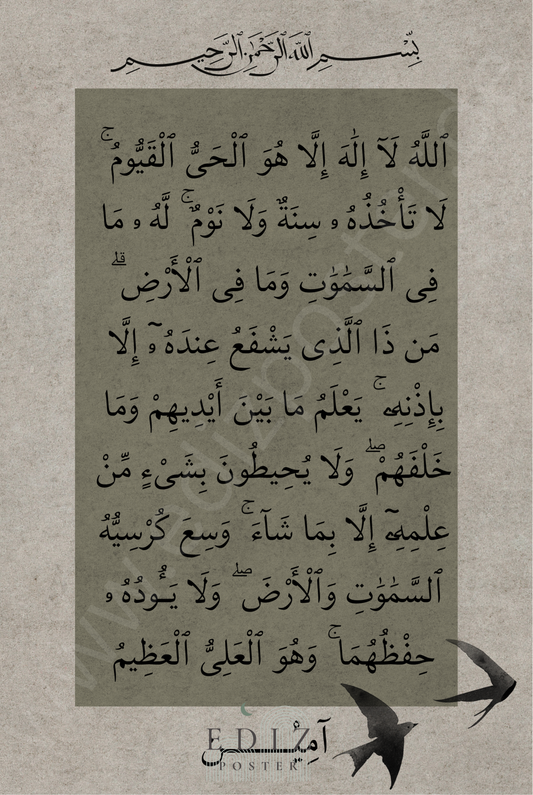 بِسْمِ اللَّهِ الرَّحْمَٰنِ الرَّحِيمِ
ٱللَّهُ لَآ إِلَٰهَ إِلَّا هُوَ ٱلْحَىُّ ٱلْقَيُّومُ ۚ
لَا تَأْخُذُهُۥ سِنَةٌ وَلَا نَوْمٌ ۚ لَّهُۥ مَا
فِى ٱلسَّمَٰوَٰتِ وَمَا فِى ٱلْأَرْضِ ۗ
مَن ذَا ٱلَّذِى يَشْفَعُ عِندَهُۥٓ إِلَّا
بِإِذْنِهِۦ ۚ يَعْلَمُ مَا بَيْنَ أَيْدِيهِمْ وَمَا
خَلْفَهُمْ ۖ وَلَا يُحِيطُونَ بِشَىْءٍ مِّنْ
عِلْمِهِۦٓ إِلَّا بِمَا شَآءَ ۚ وَسِعَ كُرْسِيُّهُ
ٱلسَّمَٰوَٰتِ وَٱلْأَرْضَ ۖ وَلَا يَـُٔودُهُۥ
حِفْظُهُمَا ۚ وَهُوَ ٱلْعَلِىُّ ٱلْعَظِيمُ
آمِيْن
EDIZ
POSTER